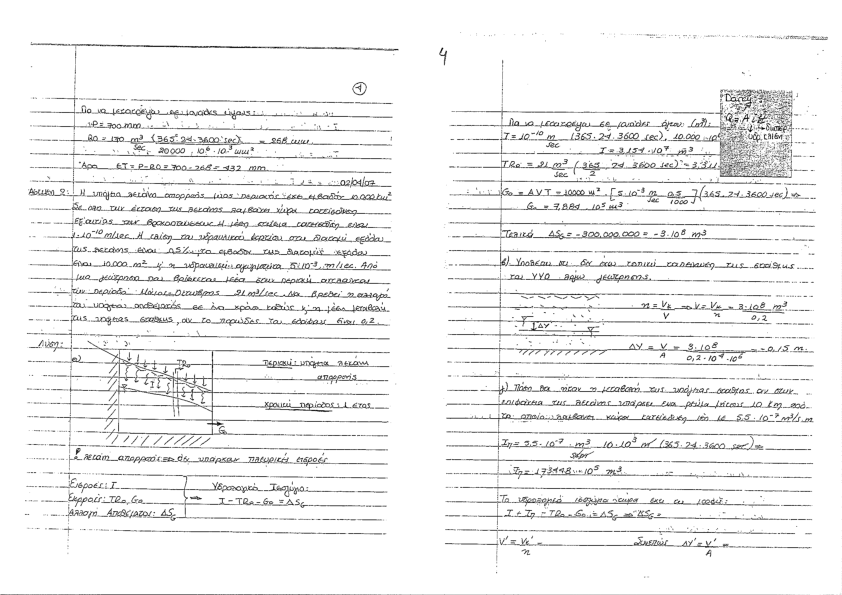 4
Για να μετατρέψω σε μονάδες μήκους:
P = 700 mm
RO = 170 m³/sec (365·24·3600 sec) / 20000·10⁶·10³ mm² = 268 mm
Άρα ET = P-RO = 700-268 = 432 mm
02/04/07
Άσκηση 2: Η υπόγεια λεκάνη απορροής μιας περιοχής έχει εμβαδόν 10.000 km²
Σε όλη την έκταση της λεκάνης λαμβάνει χώρα κατείσδυση
εξαιτίας των βροχοπτώσεων. Η μέση ετήσια κατείσδυση είναι
1·10⁻¹⁰ m/sec. Η κλίση του υδραυλικού φορτίου στη διατομή εξόδου
της λεκάνης είναι 0,5‰, το εμβαδόν της διατομής εξόδου
είναι 10.000 m² κ' η υδραυλική αγωγιμότητα 5·10⁻³ m/sec. Από
μια γεώτρηση που βρίσκεται μέσα στην περιοχή αντλείται
την περίοδο Μάιος-Οκτώβρης 21 m³/sec. Να βρεθεί η αλλαγή
του υπόγειου αποθέματος σε ένα χρόνο καθώς κ' η μέση μεταβολή
της υπόγειας στάθμης, αν το πορώδες του εδάφους είναι 0,2.
Λύση:
α)
TRo
I
G₀
Περιοχή: υπόγεια λεκάνη
απορροής
Χρονική περίοδος: 1 έτος
λεκάνη απορροής => δεν υπάρχουν πλευρικές εισροές
Εισροές: I
Εκροές: TRo, Go
Αλλαγή Αποθέματος: ΔSG
Υδρολογικό Ισοζύγιο:
I - TRo - Go = ΔSG
4
Darcy
Q = A·i·k
Για να μετατρέψω σε μονάδες όγκου (m³):
I = 10⁻¹⁰ m/sec (365·24·3600 sec), 10.000·10⁶
I = 3,154·10⁷ m³
TRo = 21 m³/sec (365/2 · 24·3600 sec) = 3,311
Go = ΔVT = 10000 m² · [5·10⁻³ m/sec 0,5/1000] (365·24·3600 sec) =>
Go = 7,884·10⁵ m³
Τελικά ΔSG = -300.000.000 = -3·10⁸ m³
β) Υποθέτω ότι δεν έχω τοπική ταπείνωση της στάθμης
του ΥΥΟ λόγω γεώτρησης.
ΔY
n = Vk/V => V = Vk/n = 3·10⁸/0,2 m³
ΔY = V/A = 3·10⁸/0,2·10⁴·10⁶ = -0,15 m.
γ) Πόση θα ήταν η μεταβολή της υπόγειας στάθμης αν στην
επιφάνεια της λεκάνης υπάρχει ένα ρεύμα μήκους 10 km από
το οποίο λαμβάνει χώρα κατείσδυση ίση με 5.5·10⁻⁷ m³/s.m
Iπ = 5.5·10⁻⁷ m³/s·m · 10·10³ m (365·24·3600 sec) =>
Iπ = 1,73448·10⁵ m³
Το υδρολογικό ισοζύγιο τώρα έχει ως εξής:
I + Iπ - TRo - Go = ΔSG => ΔSG =
V' = Vk'/n =
Συνεπώς ΔY' = V'/A =